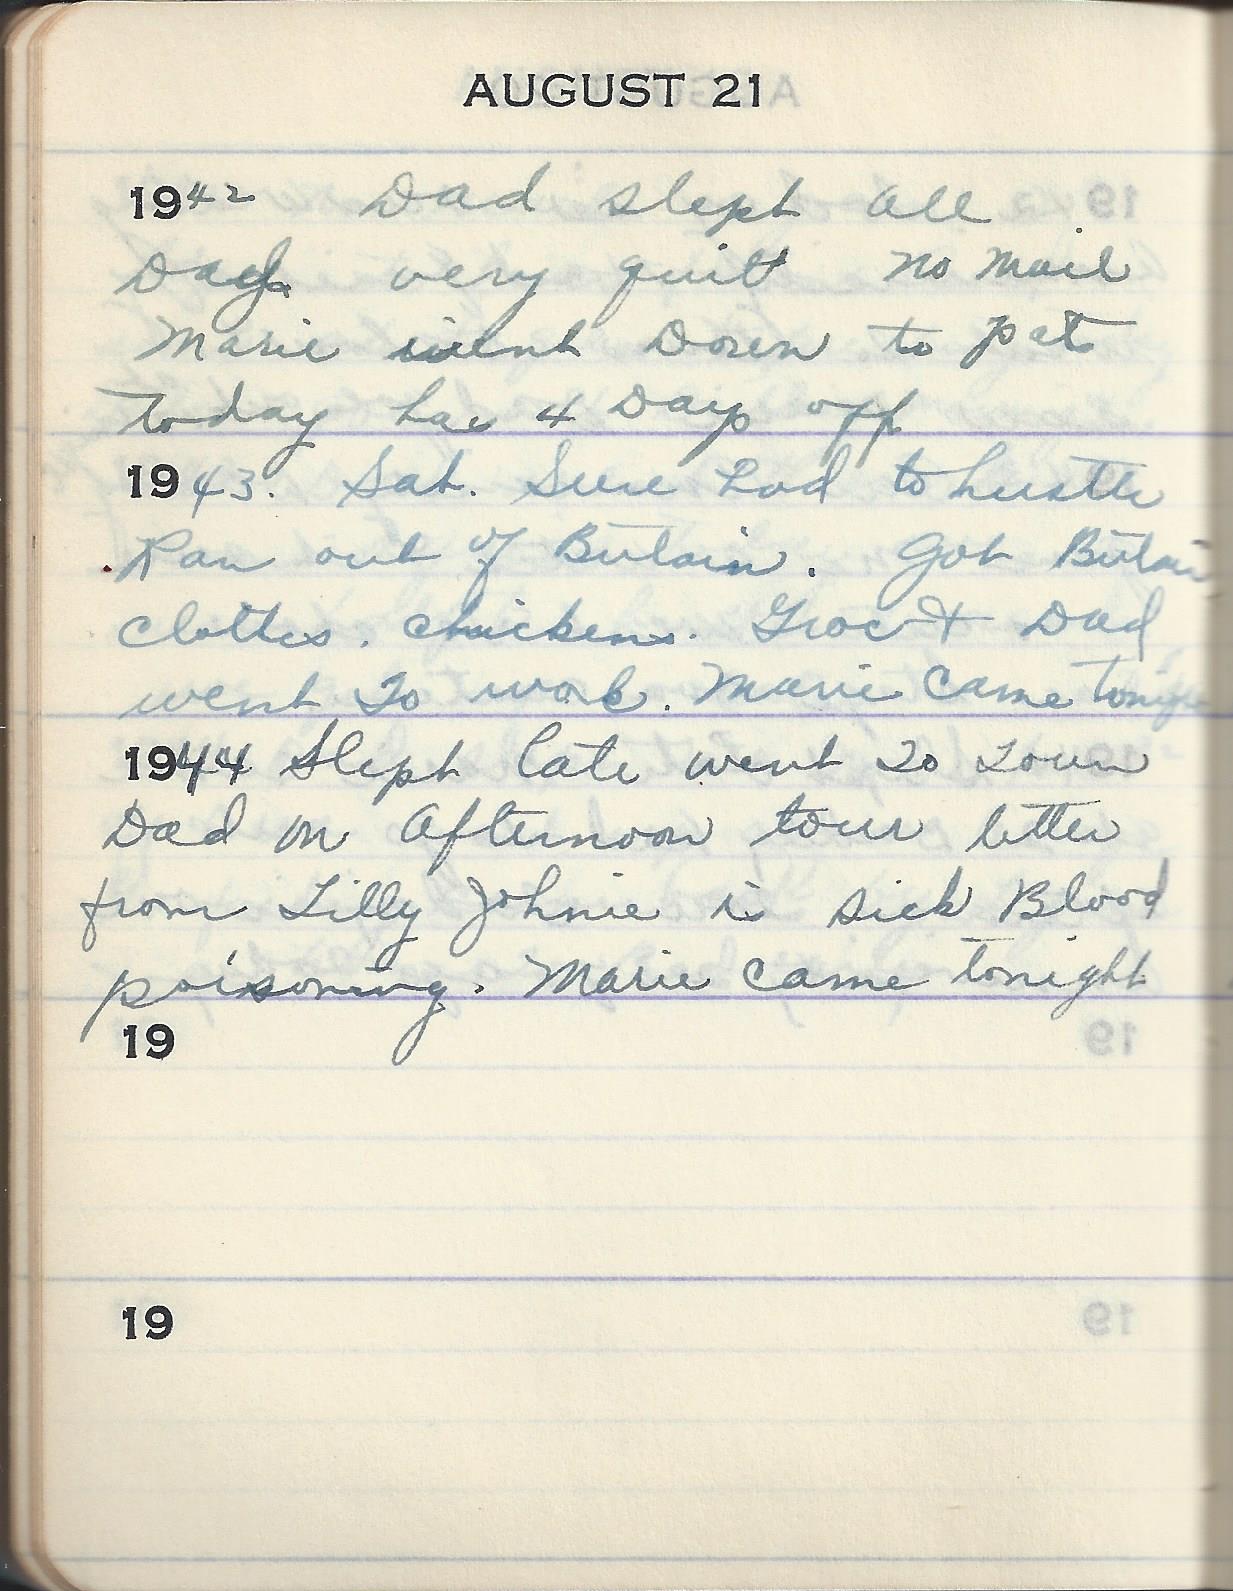 AUGUST 21
1942 Dad slept all
Day very quilt no mail
Marie went Down to Pat
today has 4 Days off
1943. Sat. Sure had to hustle
Ran out of Butain. Got Butain
clothes. chickens. Groc & Dad
went to work. Marie came tonight
1944 Slept late went to town
Dad on Afternoon tour letter
from Lilly Johnie is sick Blood
poisoning. Marie came tonight
19
19